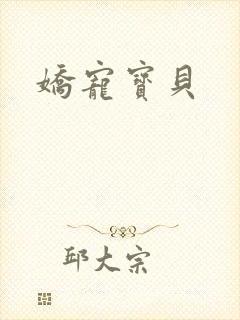 嬌寵寶貝
邱大宗